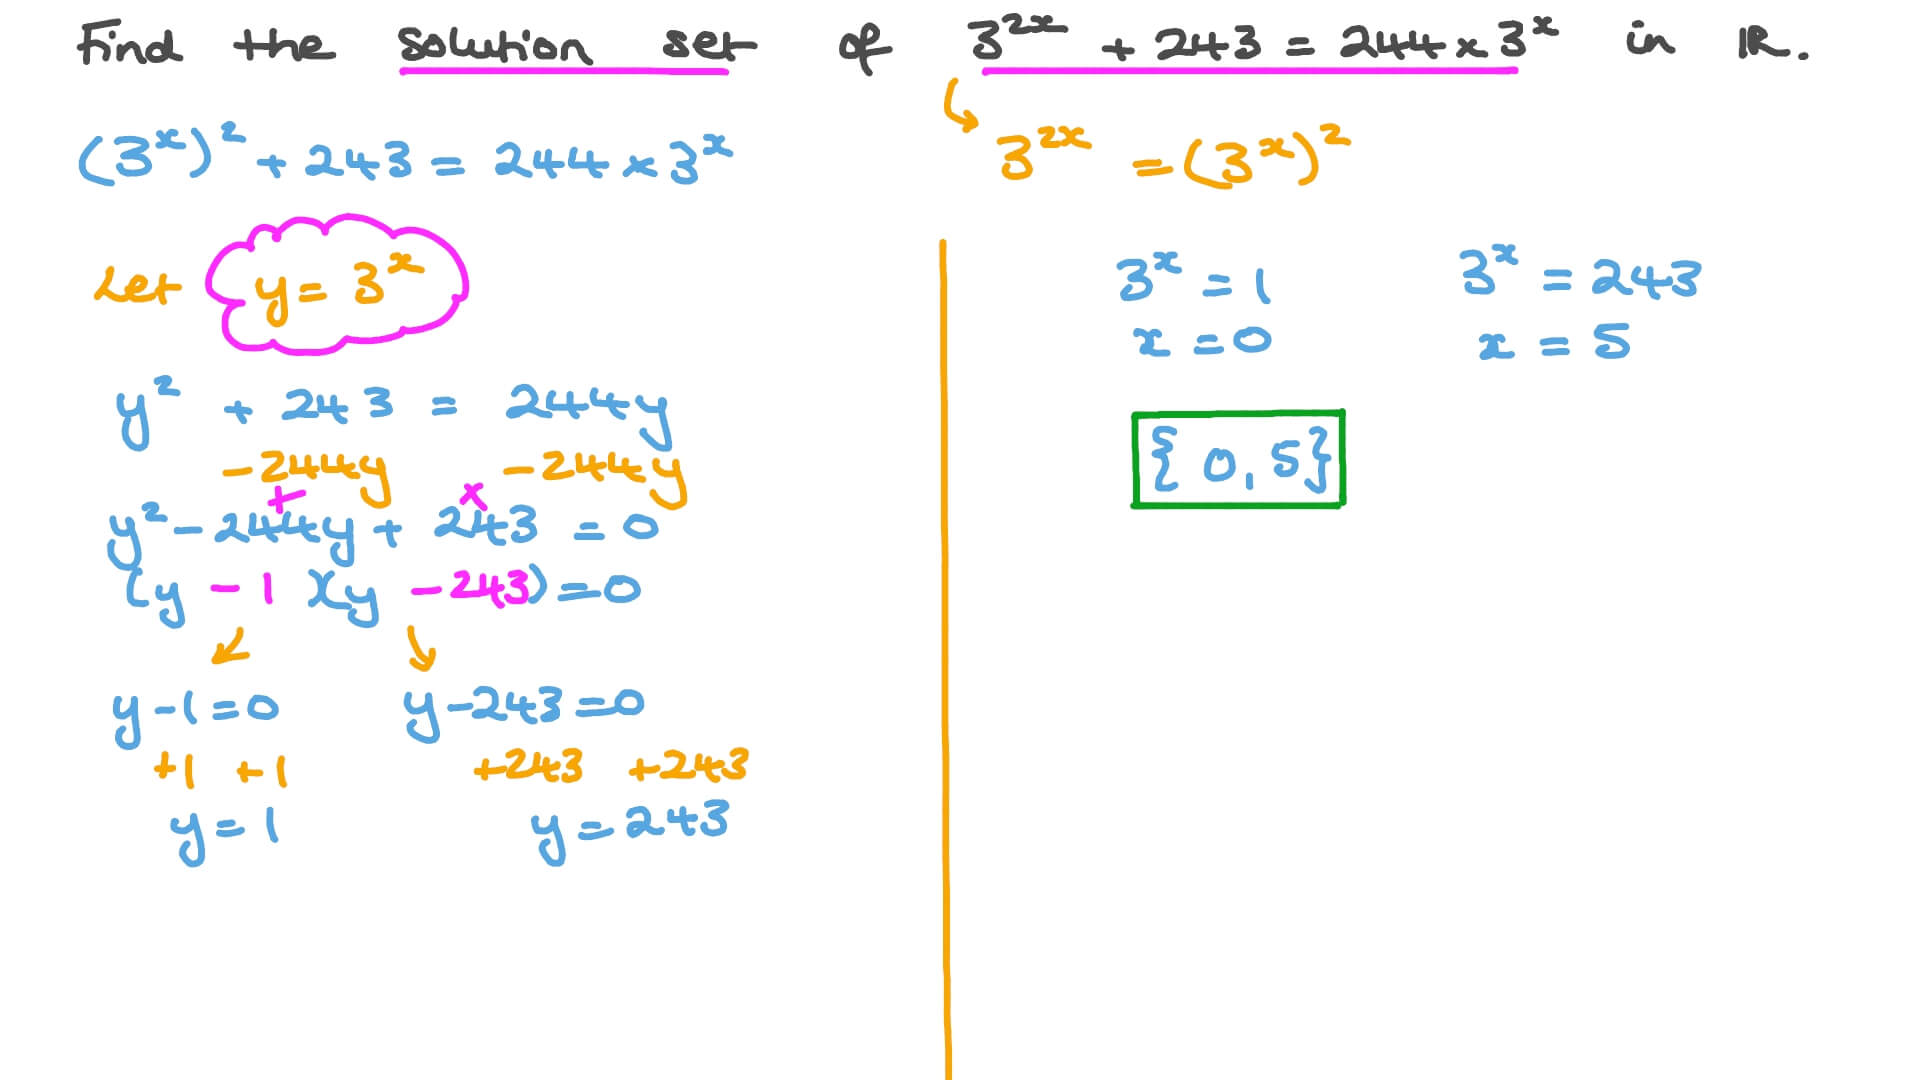 Find the solution set of 3^2x + 243 = 244 × 3^x in ℝ.
(3^x)^2 + 243 = 244 × 3^x
3^2x = (3^x)^2
Let y = 3^x
y^2 + 243 = 244y
-244y -244y
+ ×
y^2 - 244y + 243 = 0
(y - 1)(y - 243) = 0
y - 1 = 0 y - 243 = 0
+1 +1 +243 +243
y = 1 y = 243
3^x = 1 3^x = 243
x = 0 x = 5
{0, 5}